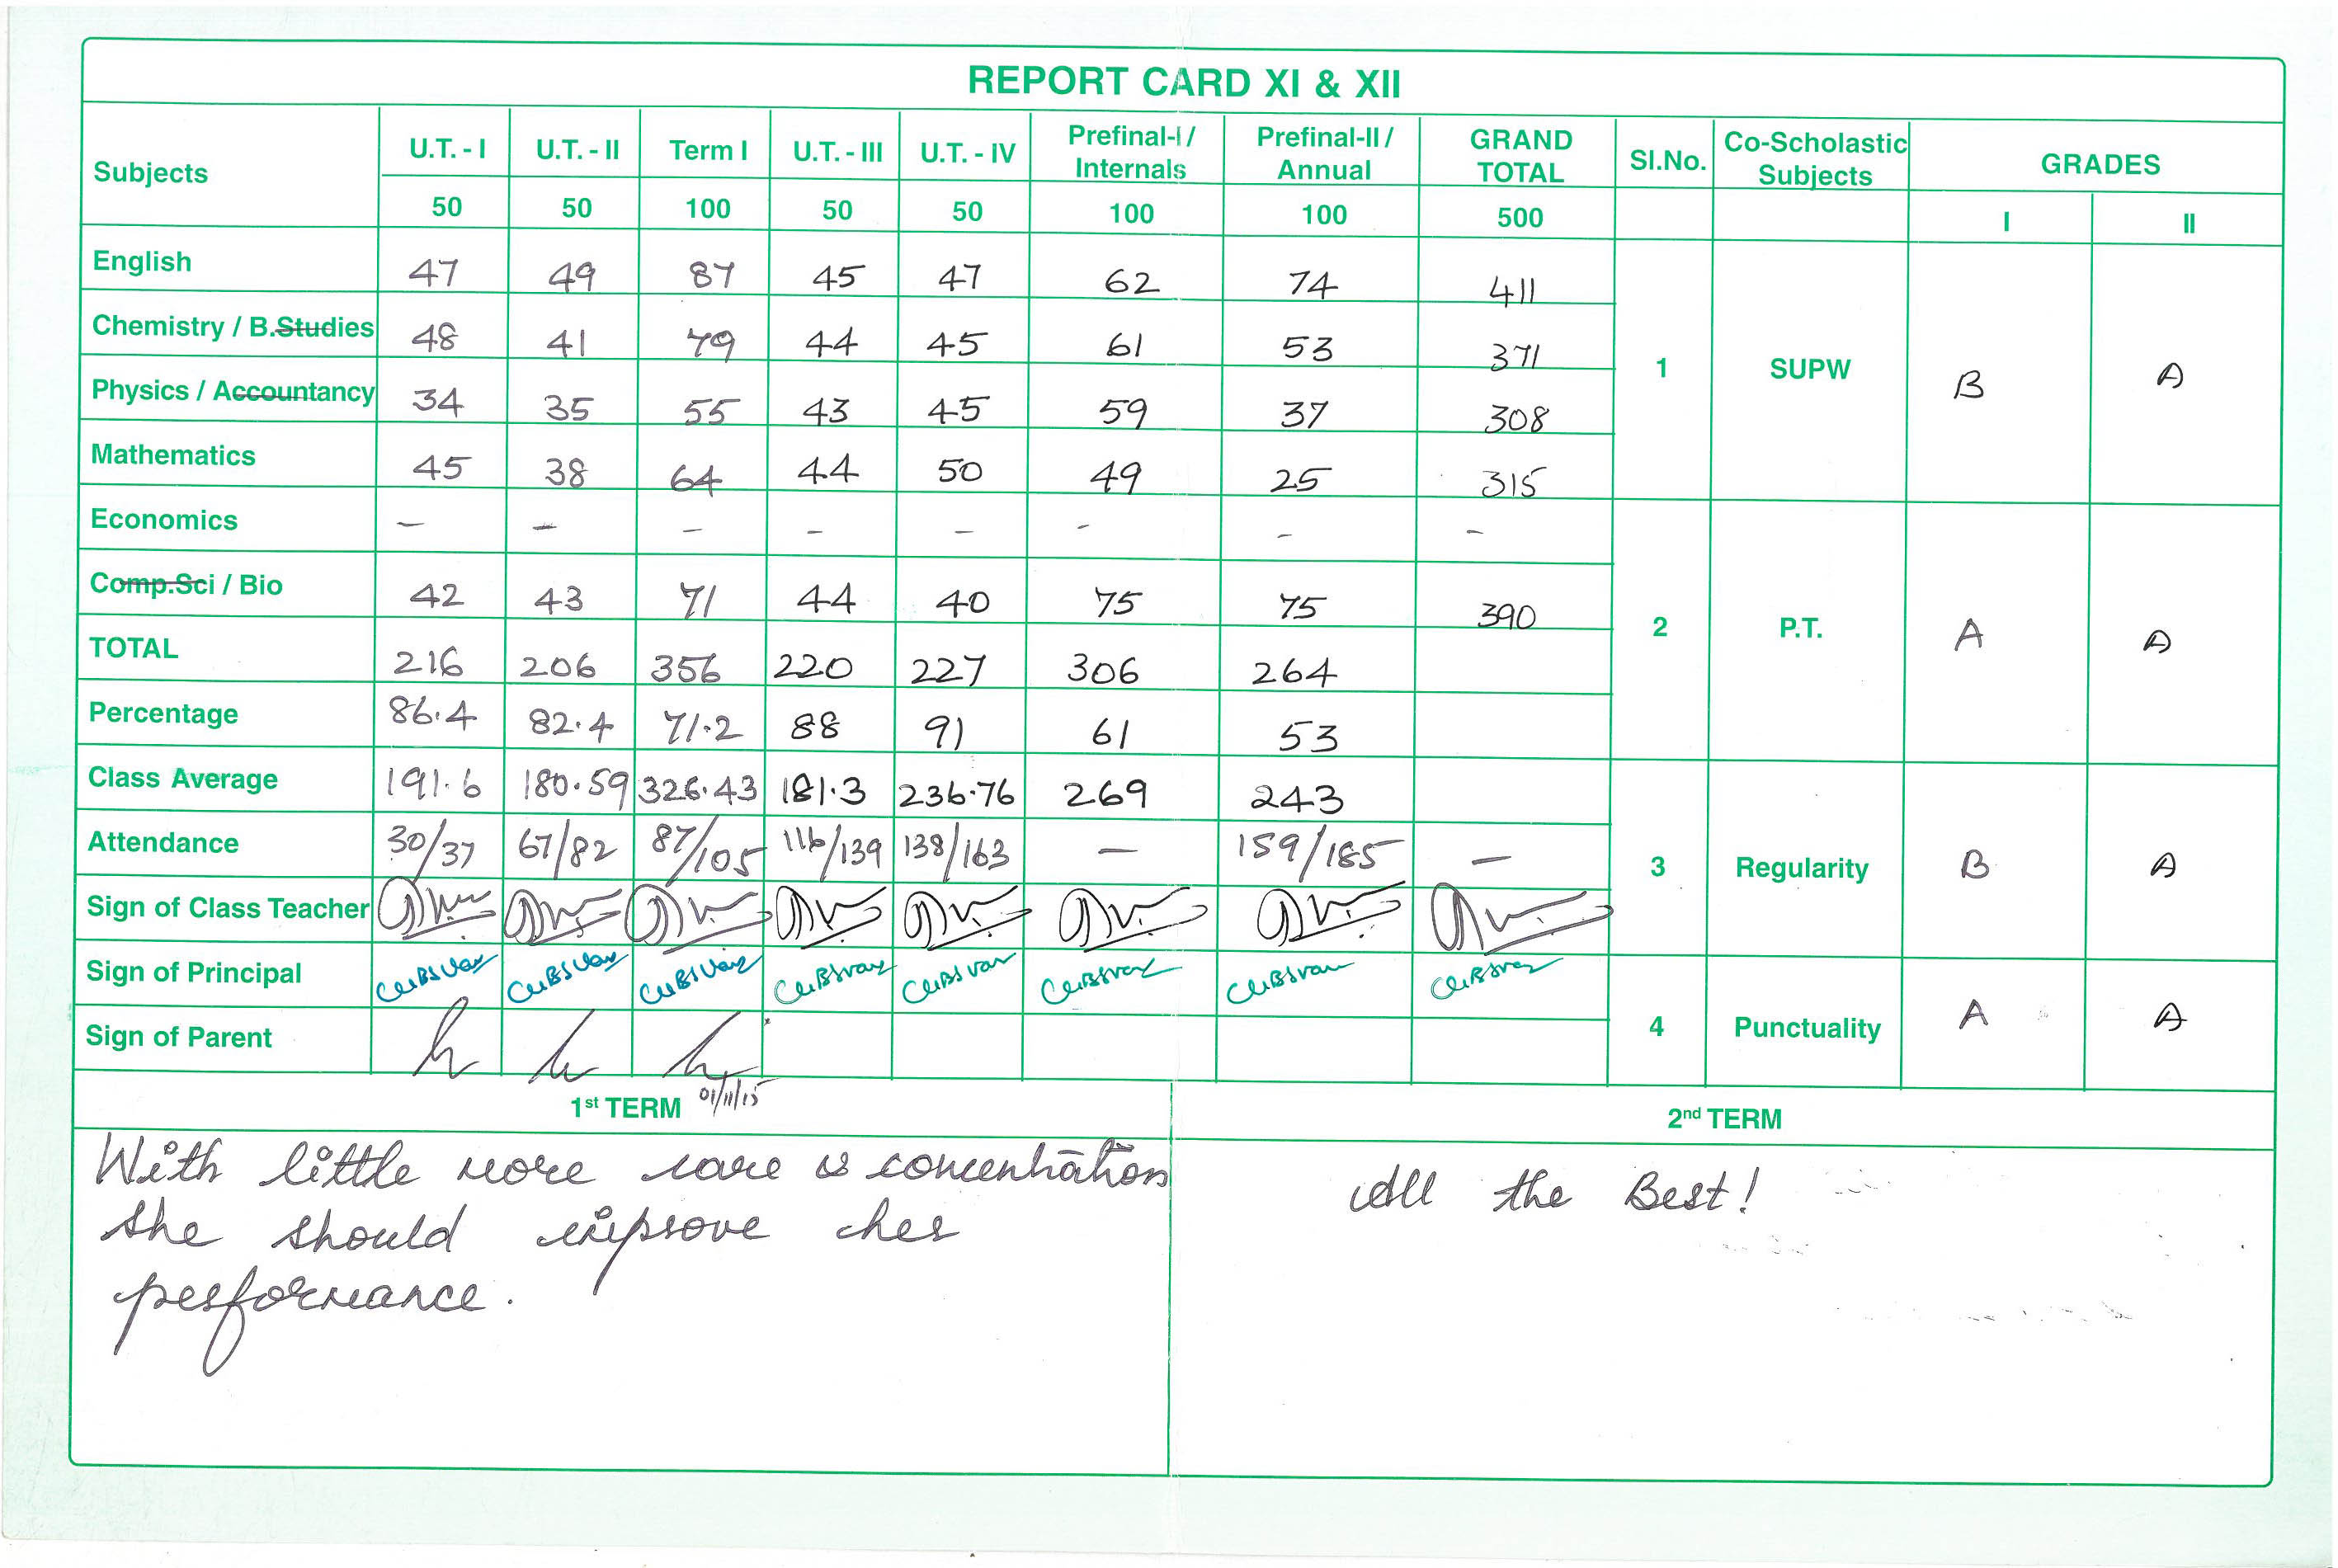 REPORT CARD XI & XII
Subjects U.T. - I U.T. - II Term I U.T. - III U.T. - IV Prefinal-I / Internals Prefinal-II / Annual GRAND TOTAL Sl.No. Co-Scholastic Subjects GRADES
50 50 100 50 50 100 100 500 I II
English 47 49 87 45 47 62 74 411
Chemistry / B.Studies 48 41 79 44 45 61 53 371
1 SUPW B A
Physics / Accountancy 34 35 55 43 45 59 37 308
Mathematics 45 38 64 44 50 49 25 315
Economics - - - - - - - -
Comp.Sci / Bio 42 43 71 44 40 75 75 390
2 P.T. A A
TOTAL 216 206 356 220 227 306 264
Percentage 86.4 82.4 71.2 88 91 61 53
Class Average 191.6 180.59 326.43 181.3 236.76 269 243
Attendance 30/37 67/82 87/105 116/139 138/163 - 159/185 -
3 Regularity B A
Sign of Class Teacher
Sign of Principal
4 Punctuality A A
Sign of Parent
1st TERM 01/11/15
2nd TERM
With little more care & concentration
she should improve her
performance.
All the Best!